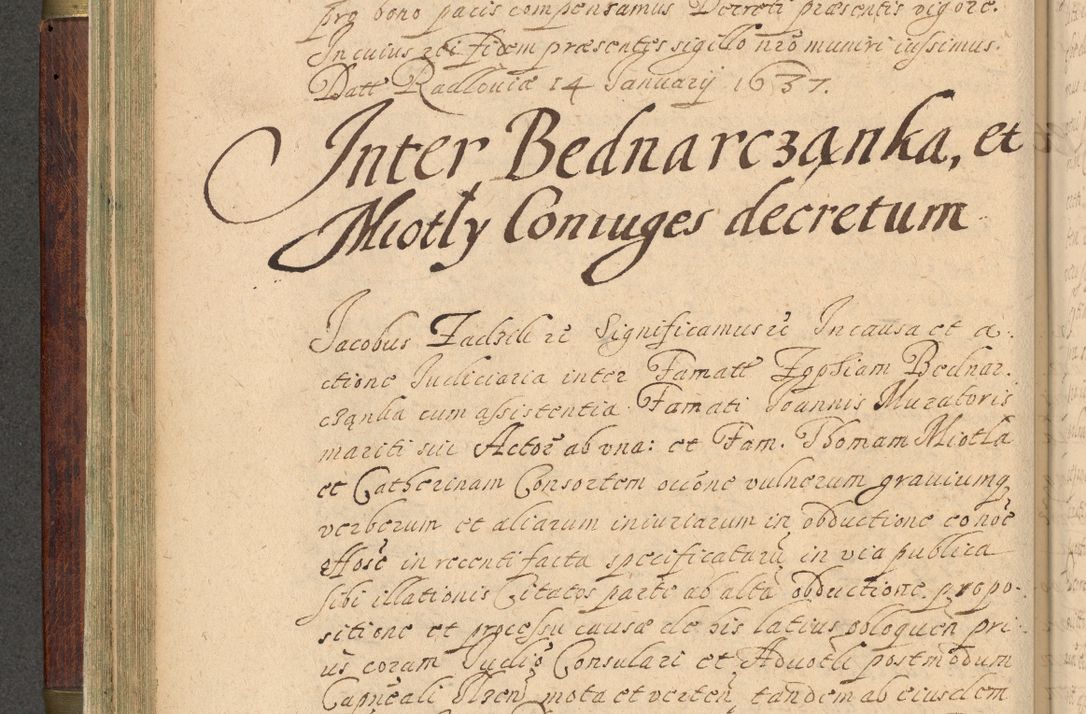 pro bono pacis compensamus Decreti præsentis vigore.
In cuius rei fidem præsentes sigillo nro muniri iussimus.
Datt Radloviæ 14 Januarij 1637.
Inter Bednarcząnka, et
Miotły Coniuges decretum
Jacobus Zadzik &c Significamus &c In causa et a:
ctione Judiciaria inter Famatt Zophiam Bednar:
cząnka cum assistentia Famati Joannis Muratoris
mariti sui Actorē ab vna: et Fam. Thomam Miotla
et Catherinam Consortem occōne vulnerum grauiumq
verberum et aliarum iniuriarum in obductione
in recenti facta specificatarū in via publica
sibi illationis Citatos parte ab alta obductione, propo:
sitione et processu causæ de his latius pri:
us coram Judio Consulari et Aduocli postmodum
Capneali mota et verten, tandem ab eiusdem